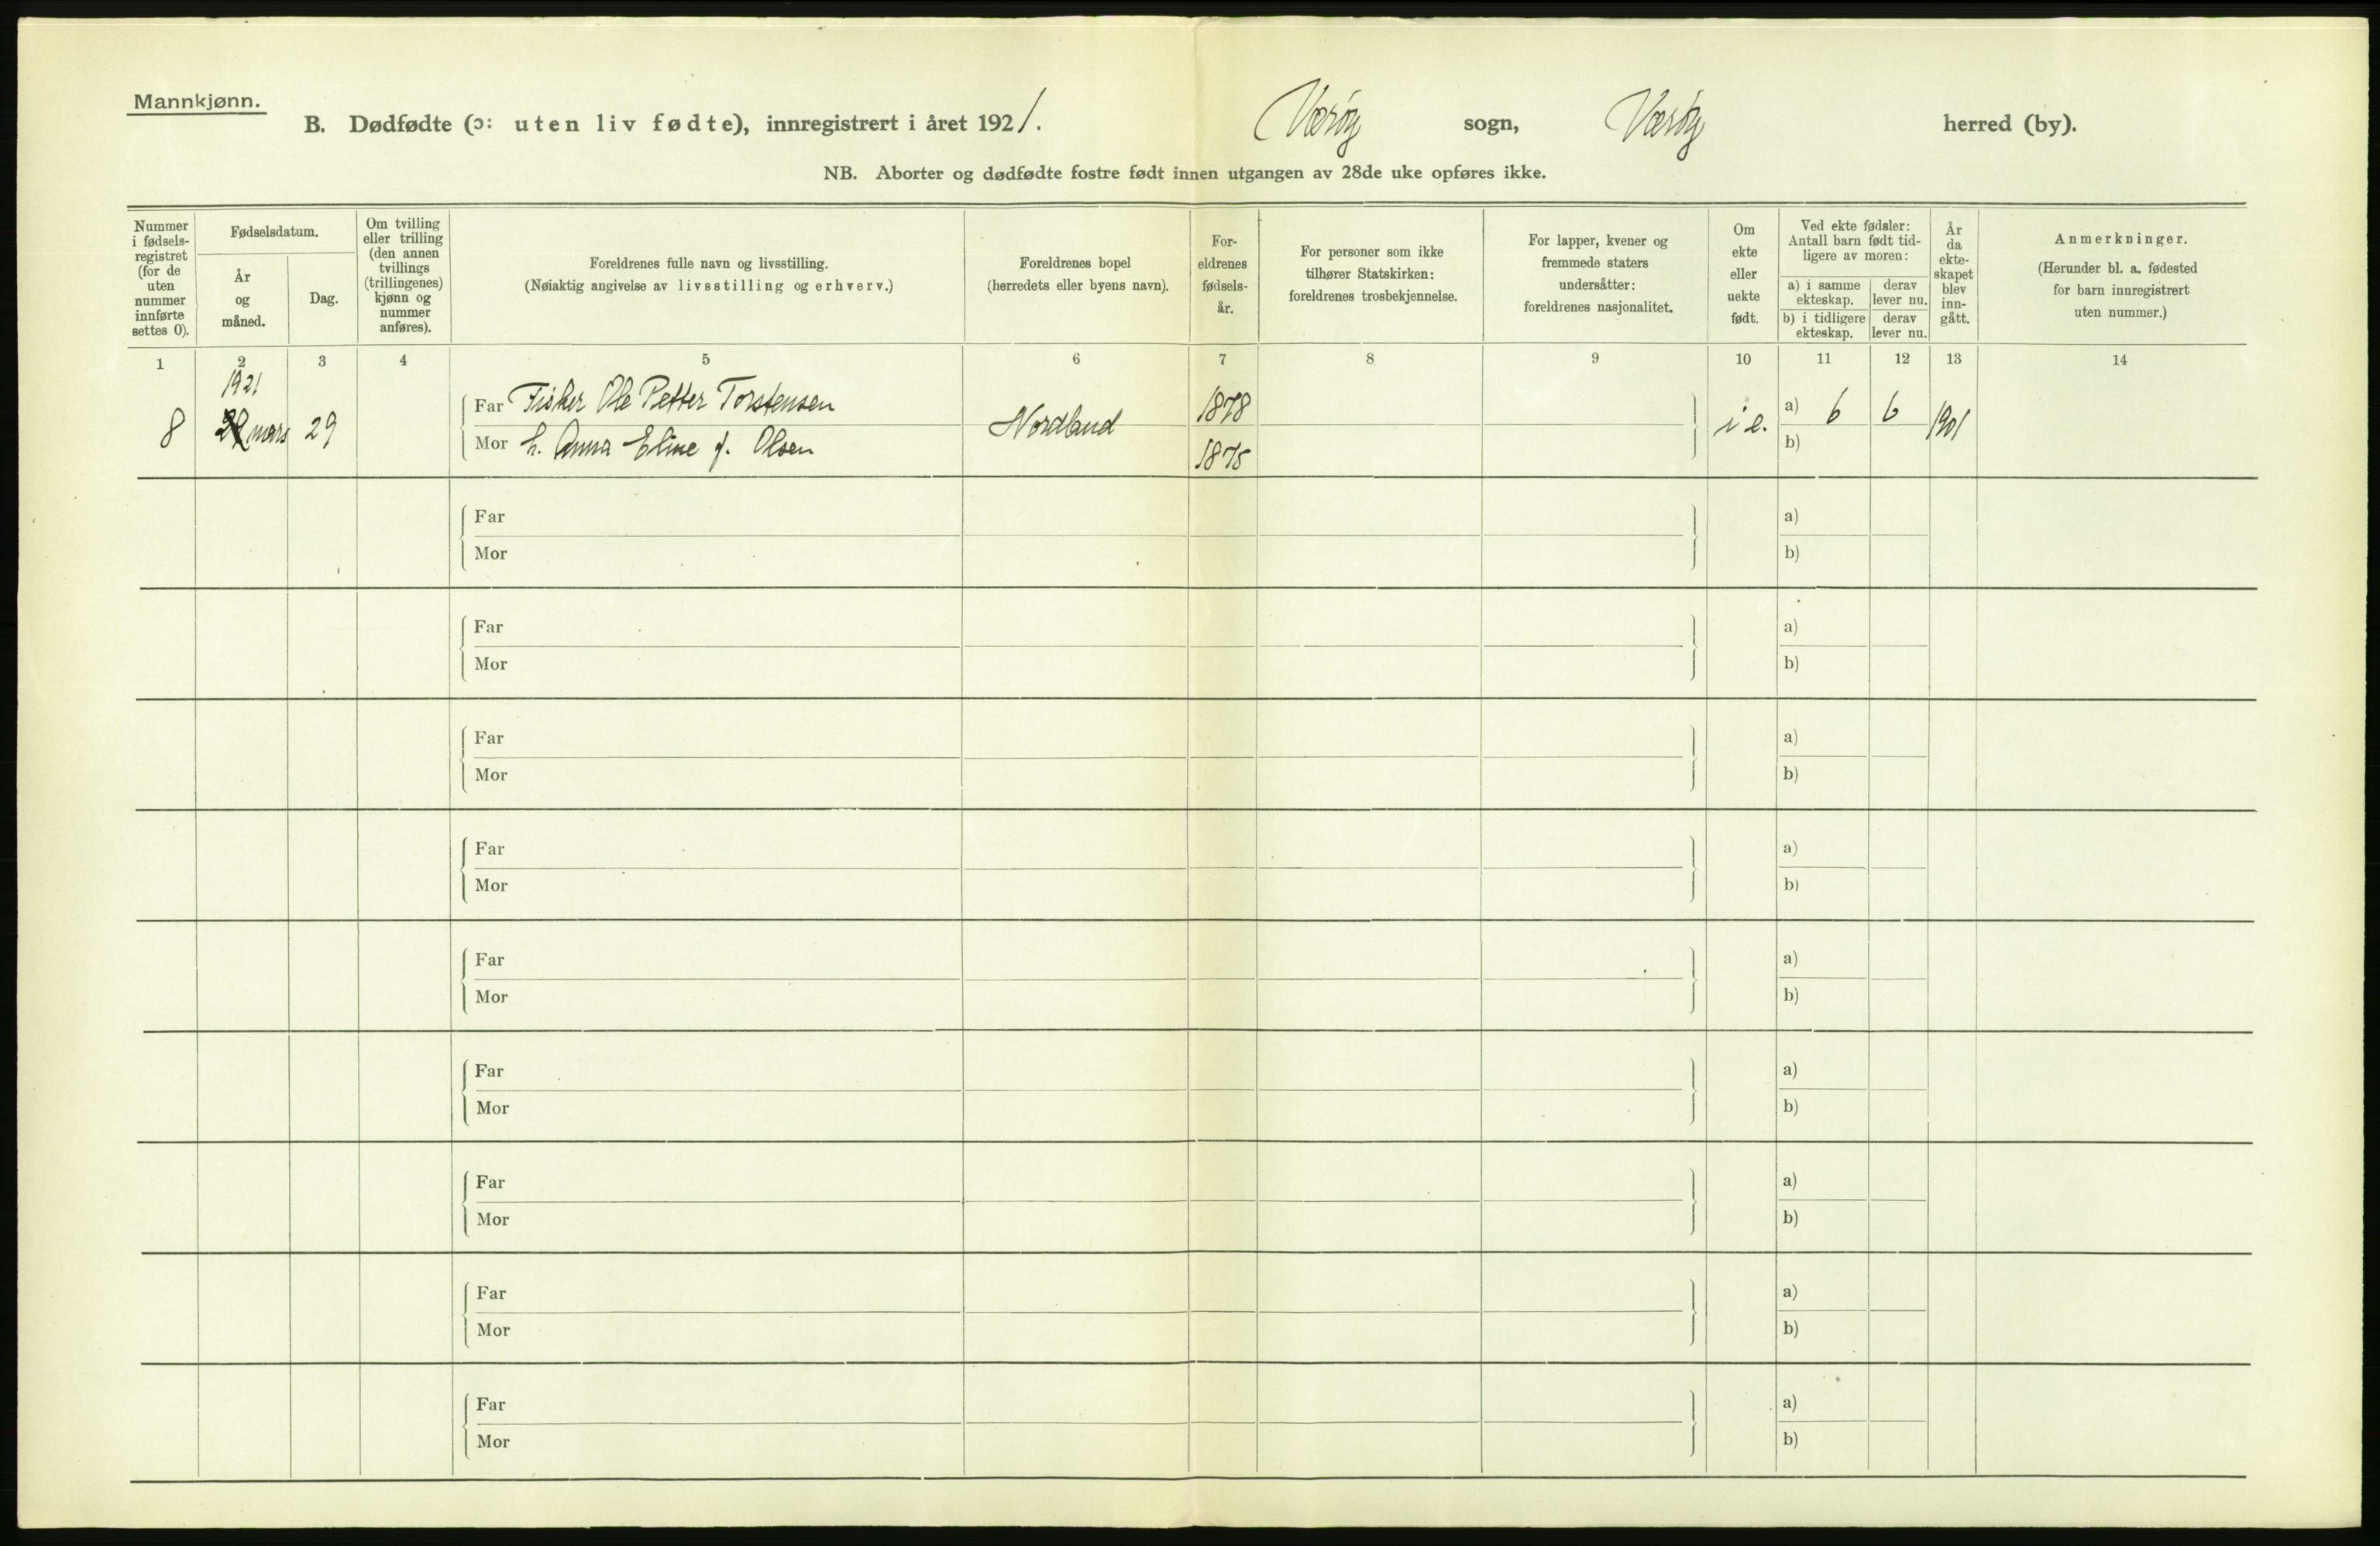 Mannkjønn.
B. Dødfødte (ɔ: uten liv fødte), innregistrert i året 1921. Værøy sogn, Værøy herred (by).
NB. Aborter og dødfødte fostre født innen utgangen av 28de uke opføres ikke.
Nummer i fødsels-registret (for de uten nummer innførte settes 0).
Fødselsdatum.
År og måned.
Dag.
Om tvilling eller trilling (den annen tvillings (trillingenes) kjønn og nummer anføres).
Foreldrenes fulle navn og livsstilling.
(Nøiaktig angivelse av livsstilling og erhverv.)
Foreldrenes bopel
(herredets eller byens navn).
For-eldrenes fødsels-år.
For personer som ikke tilhører Statskirken: foreldrenes trosbekjennelse.
For lapper, kvener og fremmede staters undersåtter: foreldrenes nasjonalitet.
Om ekte eller uekte født.
Ved ekte fødsler: Antall barn født tid-ligere av moren:
a) i samme ekteskap.
derav lever nu.
b) i tidligere ekteskap.
derav lever nu.
År da ekte-skapet blev inn-gått.
Anmerkninger.
(Herunder bl. a. fødested for barn innregistrert uten nummer.)
1 2 3 4 5 6 7 8 9 10 11 12 13 14
1921
8 mars 29
Far Fisker Ole Petter Torstensen 1878
Nordland i e. a) 6 6 1901
Mor h. Anna Eline f. Olsen 1875 b)
Far a)
Mor b)
Far a)
Mor b)
Far a)
Mor b)
Far a)
Mor b)
Far a)
Mor b)
Far a)
Mor b)
Far a)
Mor b)
Far a)
Mor b)
Far a)
Mor b)